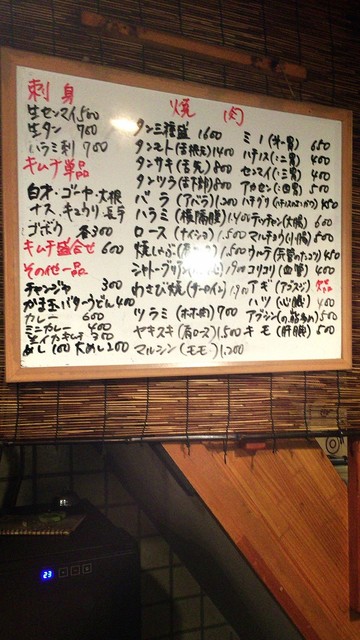 刺身
生センマイ500
生タン 700
ハラミ刺 700
キムチ単品
白才・ゴーヤ・大根
ナス、キュウリ、長芋
ゴボウ 各300
キムチ盛合せ 600
その他一品
チャンジャ 300
かま玉バターうどん400
カレー 600
ミニカレー 400
生イカキムチ 300
めし 100 大めし200
焼肉
タン三種盛 1600
タンモト(舌根元)1400
タンサキ(舌先)800
タンツラ(舌下部)800
バラ(アバラ)1,300
ハラミ(横隔膜)1,400
ロース(ナイショ)1,500
焼しゃぶ
わさび焼(サーロイン)1,900
ツラミ(ホホ肉)700
ヤキスキ(肩ロース)1,500
マルシン(モモ)1,200
ミノ(第一胃)650
ハチノス(二胃)400
センマイ(三胃)400
アカセン(四胃)500
ハチグリ
テッチャン(大腸)600
マルチョウ(小腸)500
ウルテ(気管のたコツ)450
コリコリ(血管)400
アギ(アゴスジ)欠品
ハツ(心臓)400
アブシン(の脂多め)500
キモ(肝臓)500
23